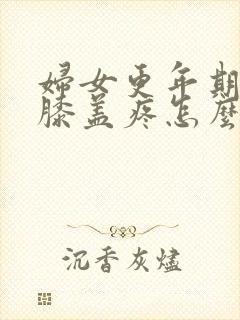 婦女更年期
膝蓋疼怎麼
沉香灰燼